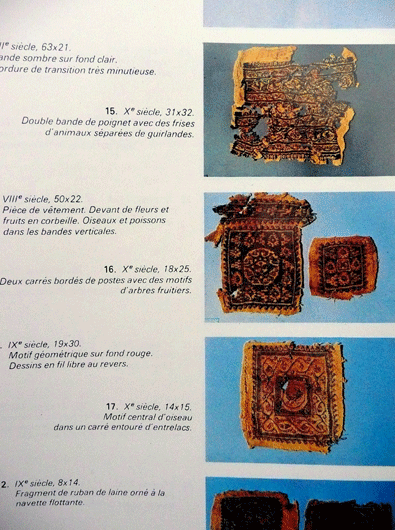 II<sup>e</sup> siècle, 63x21.
ande sombre sur fond clair.
ordure de transition très minutieuse.
15. X<sup>e</sup> siècle, 31x32.
Double bande de poignet avec des frises
d'animaux séparées de guirlandes.
VIII<sup>e</sup> siècle, 50x22.
Pièce de vêtement. Devant de fleurs et
fruits en corbeille. Oiseaux et poissons
dans les bandes verticales.
16. X<sup>e</sup> siècle, 18x25.
Deux carrés bordés de postes avec des motifs
d'arbres fruitiers.
. IX<sup>e</sup> siècle, 19x30.
Motif géométrique sur fond rouge.
Dessins en fil libre au revers.
17. X<sup>e</sup> siècle, 14x15.
Motif central d'oiseau
dans un carré entouré d'entrelacs.
2. IX<sup>e</sup> siècle, 8x14.
Fragment de ruban de laine orné à la
navette flottante.